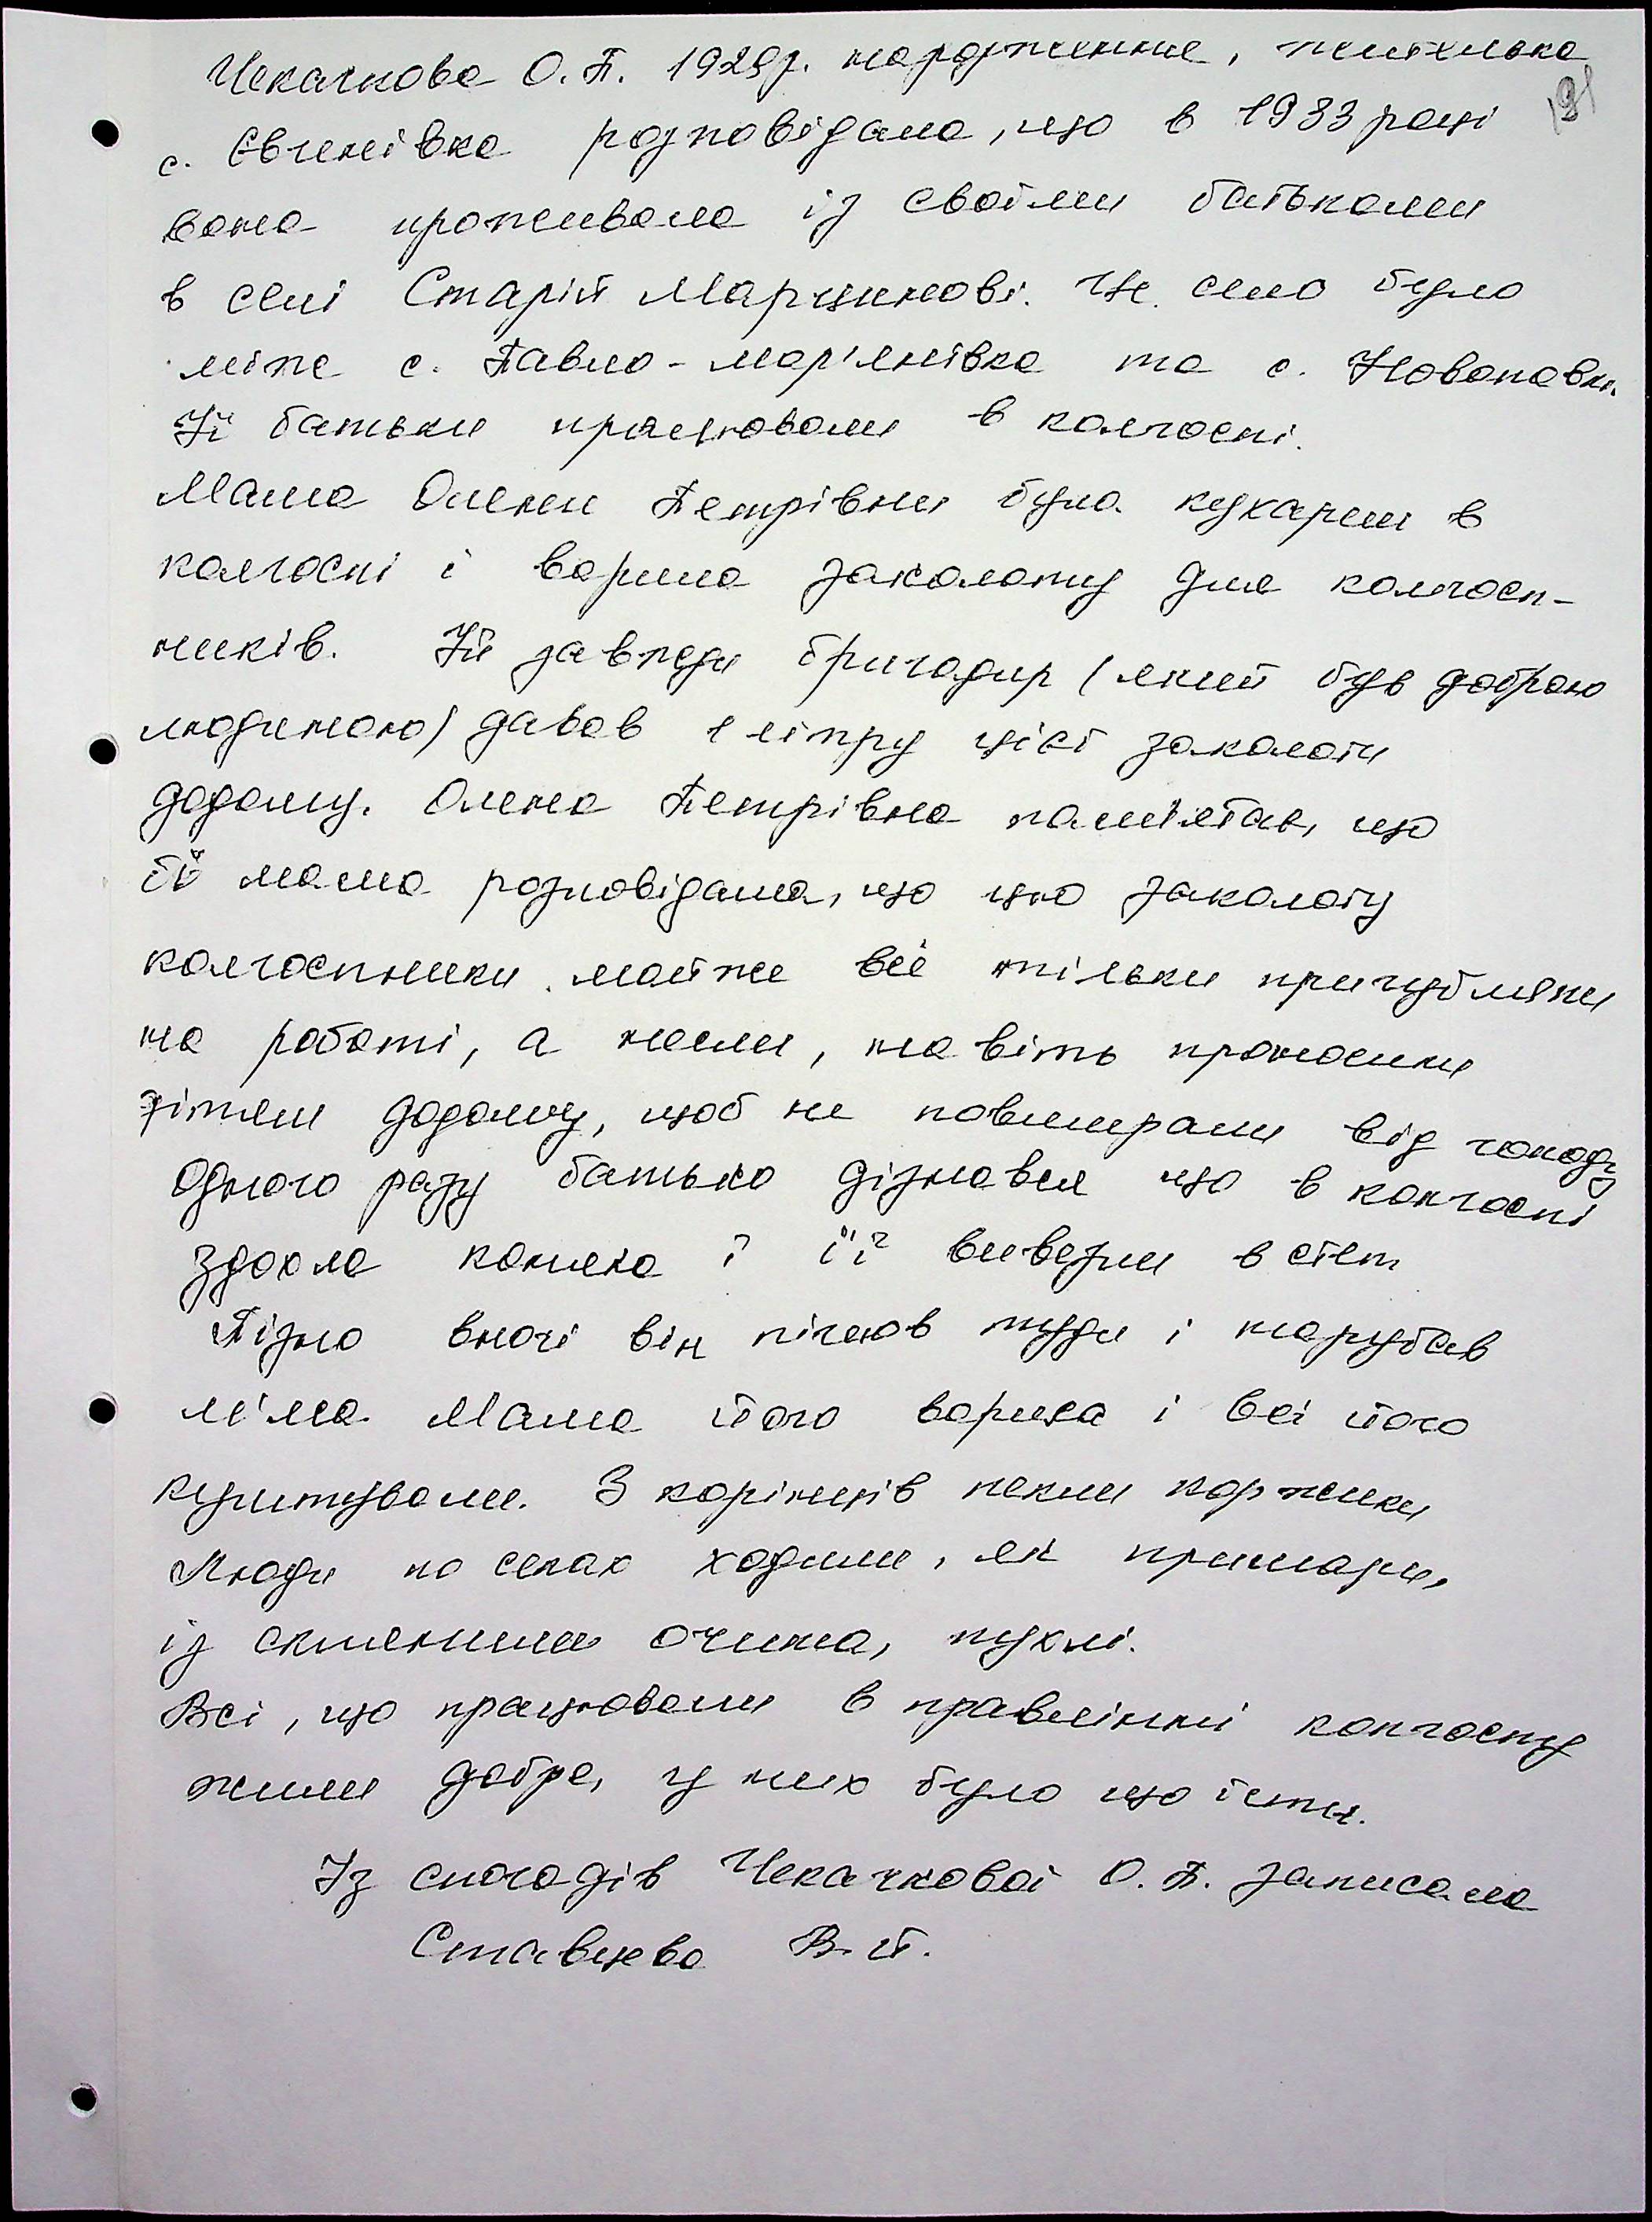 Чекачкова О. П. 1929р. народження, жителька
191
с. Євгенівка розповідала, що в 1933 році
вона проживала із своїми батьками
в селі Старій Марцинові. Це село було
між с. Павло-мар'янівка та с. Новопавл.
Її батьки працювали в колгоспі.
Мама Олени Петрівни була кухарем в
колгоспі і варила заколоту для колгосп-
ників. Їй завжди бригадир (який був доброю
людиною) давав 1 літру цієї заколоти
додому. Олена Петрівна пам'ятає, що
її мама розповідала, що цю заколоту
колгоспники майже всі тільки пригубляли
на роботі, а несли, навіть проносили
дітям додому, щоб не повмирали від голоду
Одного разу батько дізнався що в колгоспі
здохла коняка і її вивезли в степ
Пізно вночі він пішов туди і нарубав
м'яса. Мама його варила і всі його
куштували. З корінців пекли коржики
Люди по селах ходили, як примари,
із скляними очима, пухлі.
Всі, що працювали в правлінні колгоспу
жили добре, у них було що їсти.
Із спогадів Чекачкової О. П. записала
Ставцева В. П.